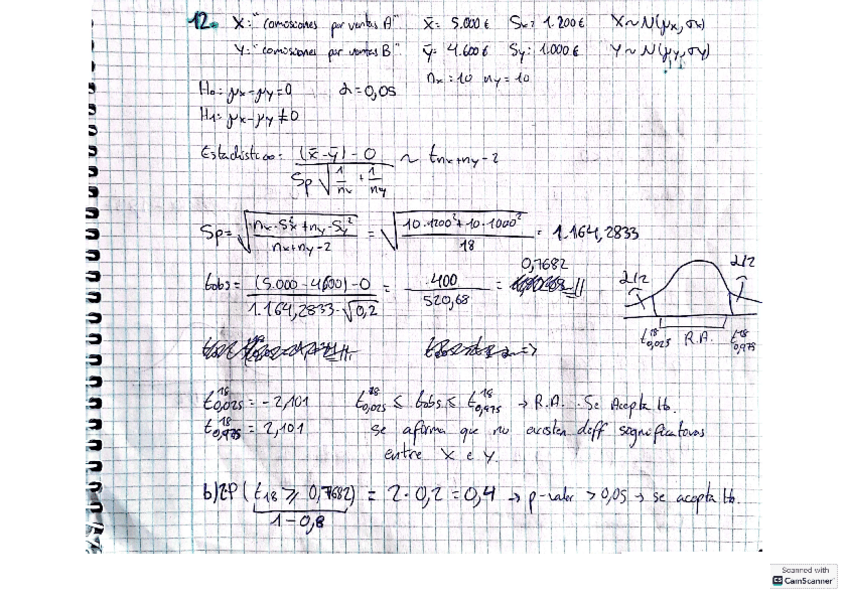 12. X: "comosciones por ventas A" x̄ = 5.000 € Sx = 1.200 € X ~ N(μx, σx)
Y: "comosciones por ventas B" ȳ = 4.600 € Sy = 1.000 € Y ~ N(μy, σy)
nx = 10 ny = 10
H₀: μx - μy = 0 α = 0,05
H₁: μx - μy ≠ 0
Estadístico = (x̄ - ȳ) - 0 / Sp √(1/nx + 1/ny) ~ t nx+ny-2
Sp = √(nx·Sx² + ny·Sy² / nx+ny-2) = √(10·1200² + 10·1000² / 18) = 1.164,2833
tobs = (5.000 - 4600) - 0 / 1.164,2833·√0,2 = 400 / 520,68 = 0,7682
α/2 α/2
t¹⁸0,025 R.A. t¹⁸0,975
t¹⁸0,025 = -2,101 t¹⁸0,025 ≤ tobs ≤ t¹⁸0,975 → R.A. Se Acepta H₀.
t¹⁸0,975 = 2,101 se afirma que no existen diff significativas
entre X e Y.
b) 2P(t18 ≥ 0,7682) = 2·0,2 = 0,4 → p-valor > 0,05 → se acepta H₀.
1-0,8
Scanned with
CS CamScanner